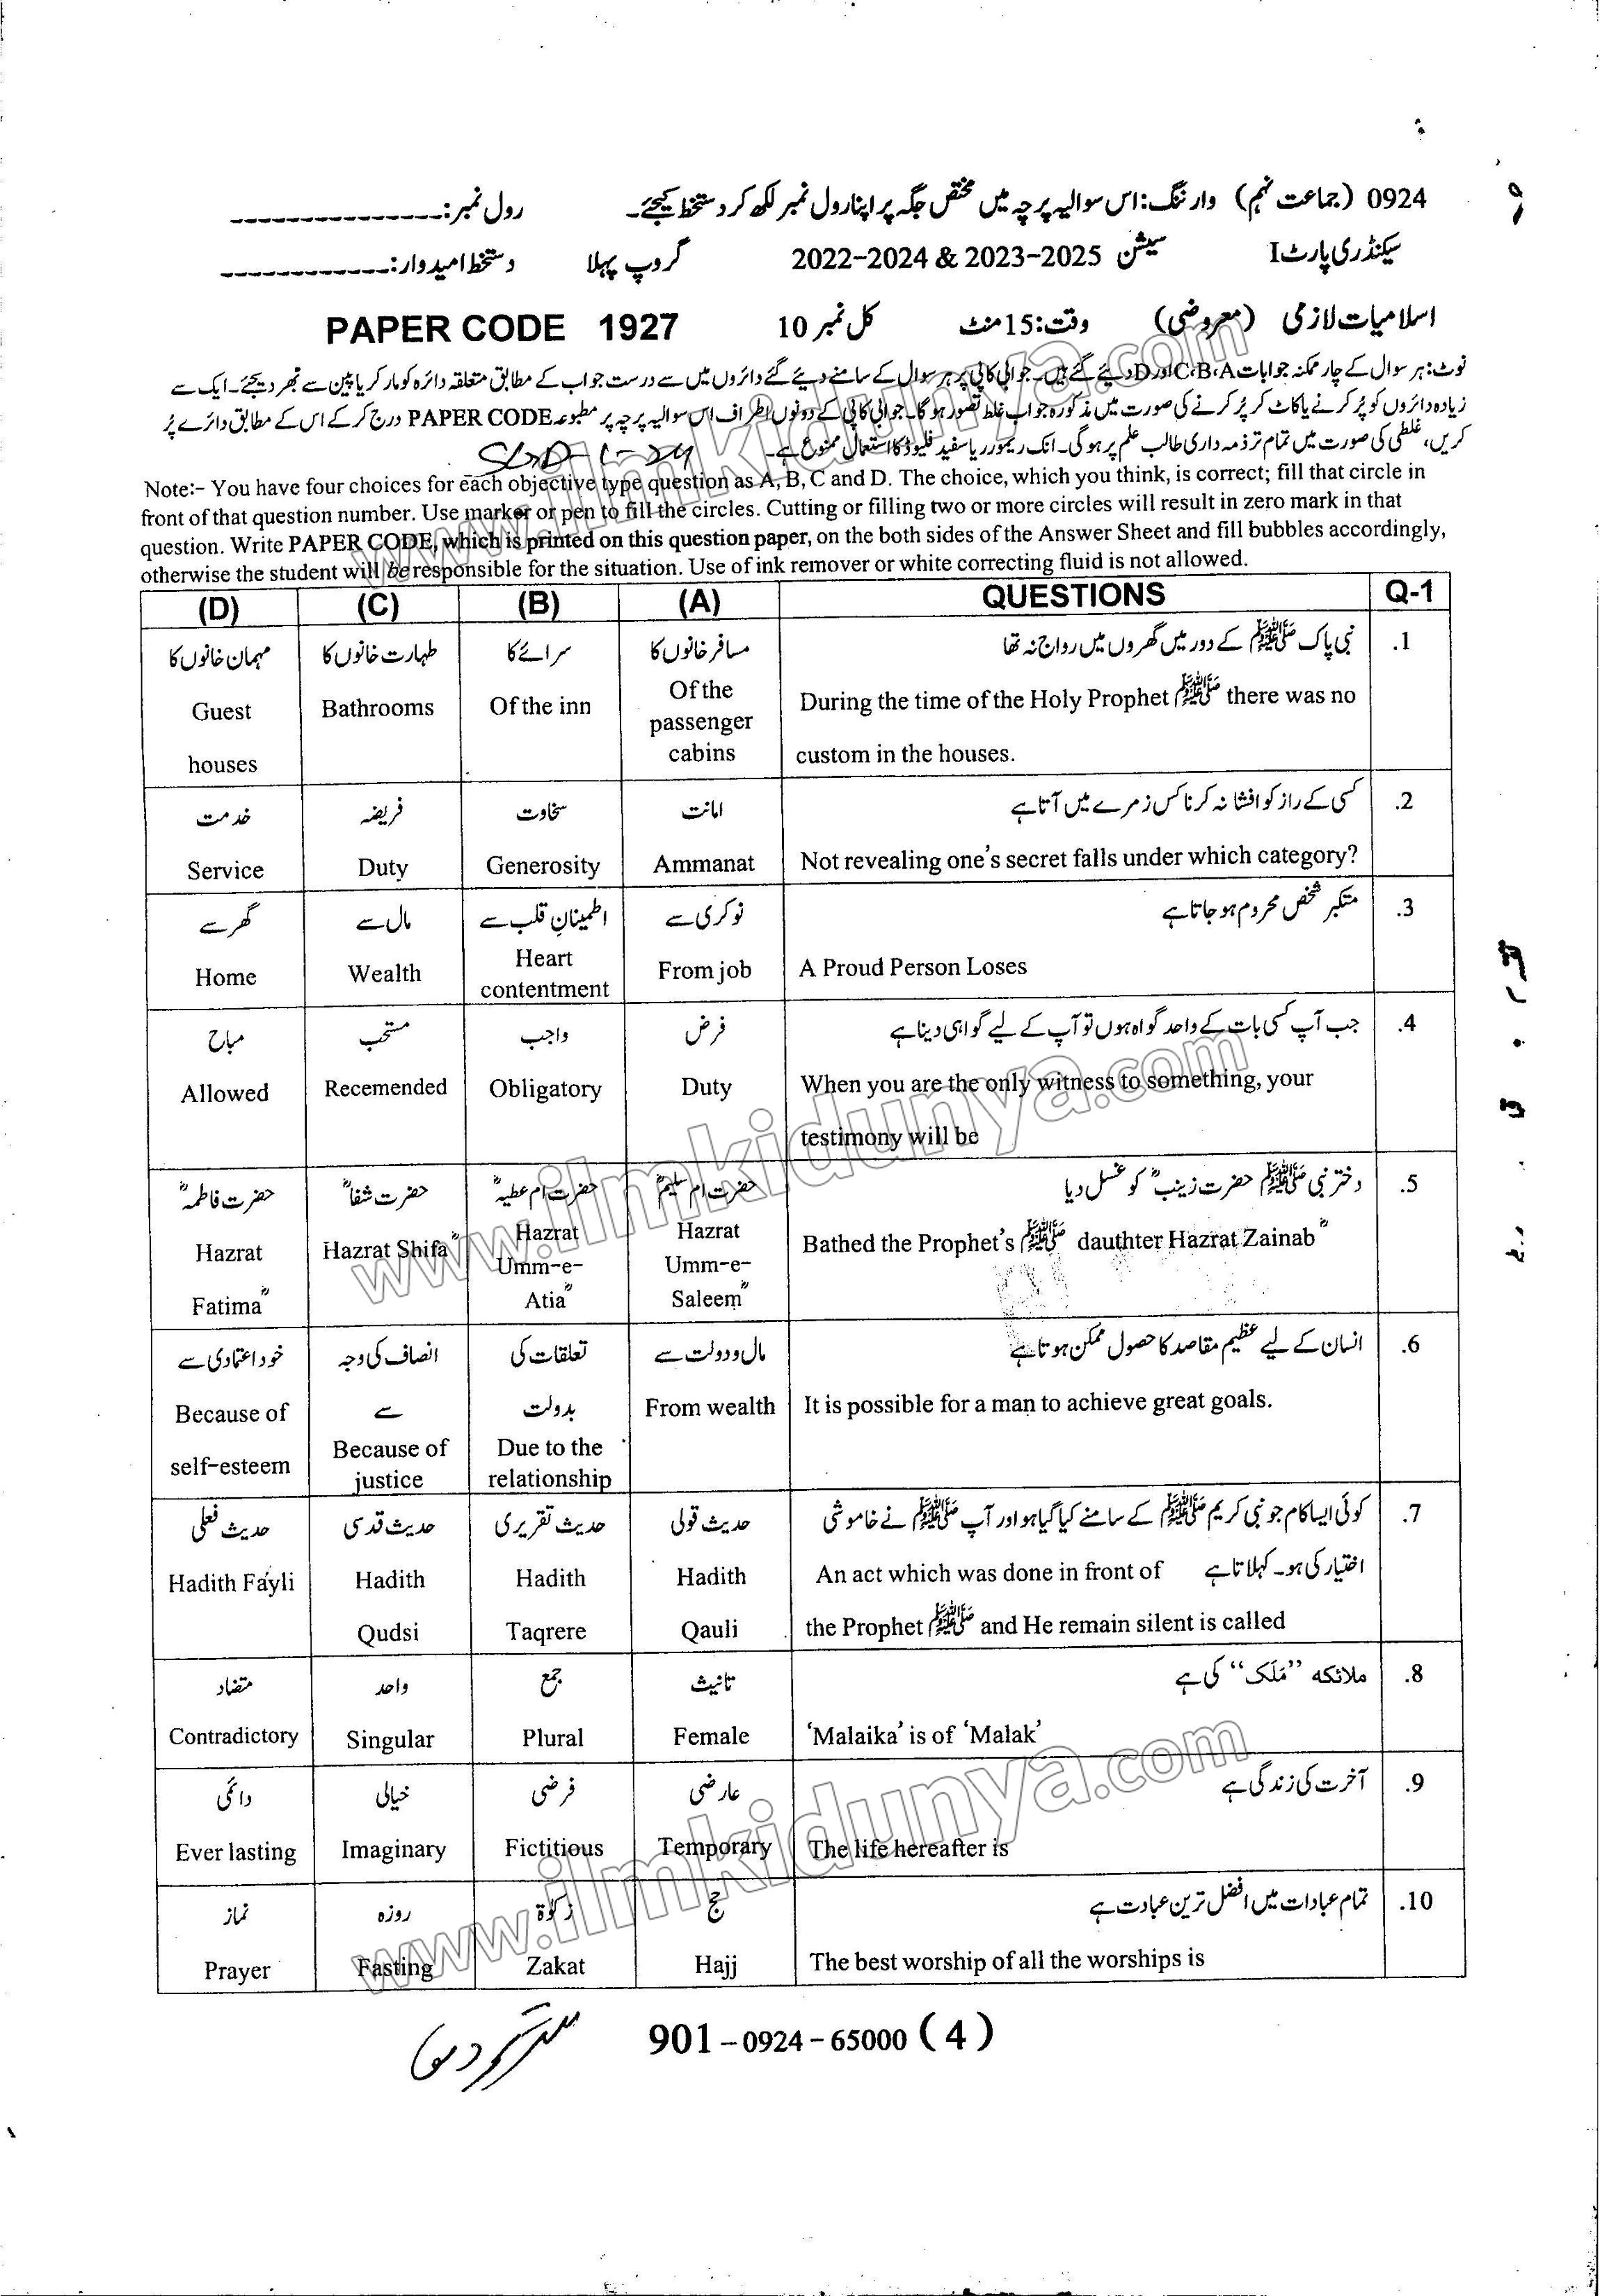 0924 (جماعت نہم) وارننگ: اس سوالیہ پرچہ میں مختص جگہ پر اپنا رول نمبر لکھ کر دستخط کیجئے۔ رول نمبر: ---------------
سیکنڈری پارٹ I سیشن 2022-2024 & 2023-2025 گروپ پہلا دستخط امیدوار: ------------
اسلامیات لازمی (معروضی) وقت: 15 منٹ کل نمبر 10 PAPER CODE 1927
نوٹ: ہر سوال کے چار ممکنہ جوابات A،B،C اور D دیئے گئے ہیں۔ جوابی کاپی پر ہر سوال کے سامنے دیئے گئے دائروں میں سے درست جواب کے مطابق متعلقہ دائرہ کو مارکر یا پین سے بھر دیجئے۔ ایک سے
زیادہ دائروں کو پُر کرنے یا کاٹ کر پُر کرنے کی صورت میں مذکورہ جواب غلط تصور ہوگا۔ جوابی کاپی کے دونوں اطراف اس سوالیہ پرچہ پر مطبوعہ PAPER CODE درج کر کے اس کے مطابق دائرے پُر
کریں، غلطی کی صورت میں تمام تر ذمہ داری طالب علم پر ہوگی۔ انک ریموور یا سفید فلیوڈ کا استعمال ممنوع ہے۔
Note:- You have four choices for each objective type question as A, B, C and D. The choice, which you think, is correct; fill that circle in
front of that question number. Use marker or pen to fill the circles. Cutting or filling two or more circles will result in zero mark in that
question. Write PAPER CODE, which is printed on this question paper, on the both sides of the Answer Sheet and fill bubbles accordingly,
otherwise the student will be responsible for the situation. Use of ink remover or white correcting fluid is not allowed.
(D) (C) (B) (A) QUESTIONS Q-1
.1 نبی پاک ﷺ کے دور میں گھروں میں رواج نہ تھا
During the time of the Holy Prophet ﷺ there was no
custom in the houses.
مسافر خانوں کا
Of the
passenger
cabins
سرائے کا
Of the inn
طہارت خانوں کا
Bathrooms
مہمان خانوں کا
Guest
houses
.2 کسی کے راز کو افشا نہ کرنا کس زمرے میں آتا ہے
Not revealing one's secret falls under which category?
امانت
Ammanat
سخاوت
Generosity
فریضہ
Duty
خدمت
Service
.3 متکبر شخص محروم ہو جاتا ہے
A Proud Person Loses
نوکری سے
From job
اطمینانِ قلب سے
Heart
contentment
مال سے
Wealth
گھر سے
Home
.4 جب آپ کسی بات کے واحد گواہ ہوں تو آپ کے لیے گواہی دینا ہے
When you are the only witness to something, your
testimony will be
فرض
Duty
واجب
Obligatory
مستحب
Recemended
مباح
Allowed
.5 دختر نبی ﷺ حضرت زینبؓ کو غسل دیا
Bathed the Prophet's ﷺ dauthter Hazrat Zainabؓ
حضرت ام سلیمؓ
Hazrat
Umm-e-
Saleemؓ
حضرت ام عطیہؓ
Hazrat
Umm-e-
Atiaؓ
حضرت شفاؓ
Hazrat Shifaؓ
حضرت فاطمہؓ
Hazrat
Fatimaؓ
.6 انسان کے لیے عظیم مقاصد کا حصول ممکن ہوتا ہے
It is possible for a man to achieve great goals.
مال و دولت سے
From wealth
تعلقات کی
بدولت
Due to the
relationship
انصاف کی وجہ
سے
Because of
justice
خود اعتمادی سے
Because of
self-esteem
.7 کوئی ایسا کام جو نبی کریم ﷺ کے سامنے کیا گیا ہو اور آپ ﷺ نے خاموشی
اختیار کی ہو۔ کہلاتا ہے An act which was done in front of
the Prophet ﷺ and He remain silent is called
حدیث قولی
Hadith
Qauli
حدیث تقریری
Hadith
Taqrere
حدیث قدسی
Hadith
Qudsi
حدیث فعلی
Hadith Fayli
.8 ملائکہ ”مَلَک“ کی ہے
'Malaika' is of 'Malak'
تانیث
Female
جمع
Plural
واحد
Singular
متضاد
Contradictory
.9 آخرت کی زندگی ہے
The life hereafter is
عارضی
Temporary
فرضی
Fictitious
خیالی
Imaginary
دائمی
Ever lasting
.10 تمام عبادات میں افضل ترین عبادت ہے
The best worship of all the worships is
حج
Hajj
زکوٰۃ
Zakat
روزہ
Fasting
نماز
Prayer
901-0924-65000 (4)
www.ilmkidunya.com
www.ilmkidunya.com
www.ilmkidunya.com